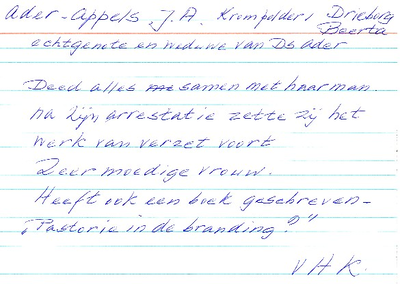 Ader-Appels, J.A. Krompolder, Drieborg
Beerta
echtgenote en weduwe van Ds Ader
Deed alles samen met haar man.
na zijn arrestatie zette zij het
werk van verzet voort
Zeer moedige vrouw.
Heeft ook een boek geschreven-
"Pastorie in de branding?"
V H K.